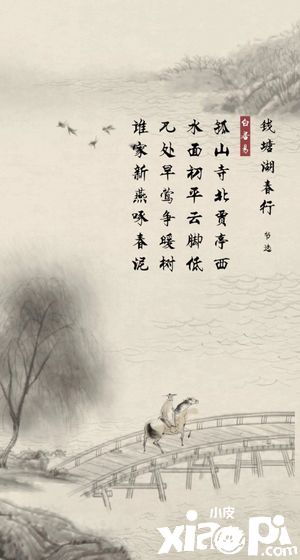 钱塘湖春行 节选
白居易
孤山寺北贾亭西
水面初平云脚低
几处早莺争暖树
谁家新燕啄春泥
小皮
xiaopi.com